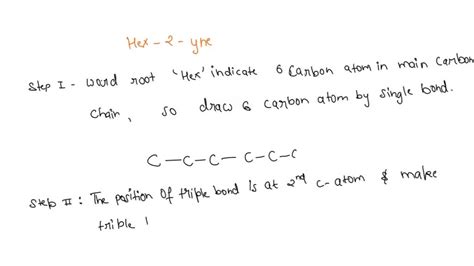 Hex-2-yne
Step I - word root 'Hex' indicate 6 Carbon atom in main Carbon
Chain, so draw 6 carbon atom by single bond.
C-C-C-C-C-C
Step II: The position of triple bond is at 2nd C-atom & make
trible